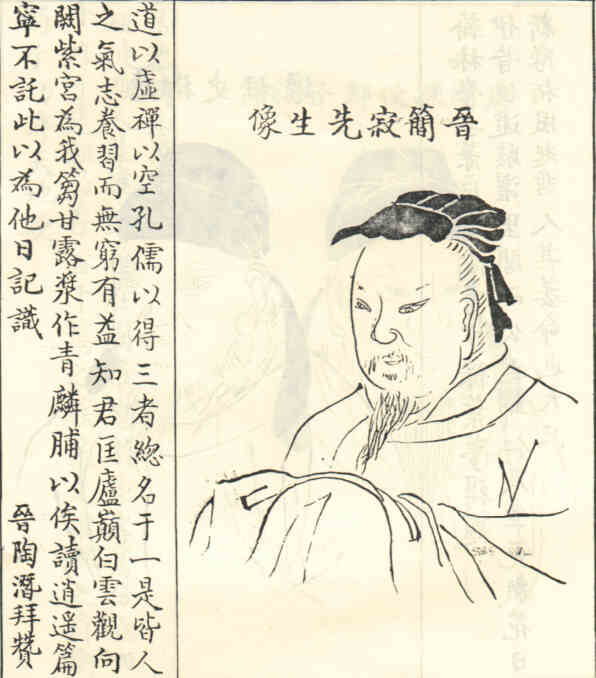 晉簡寂先生像
道以虛禪以空孔儒以得三者總名于一是皆人
之氣志養習而無窮有益知君匡廬巔白雲觀向
闕紫宮為我蒭甘露漿作青麟脯以俟讀逍遙篇
寧不託此以為他日記識
晉陶潛拜贊